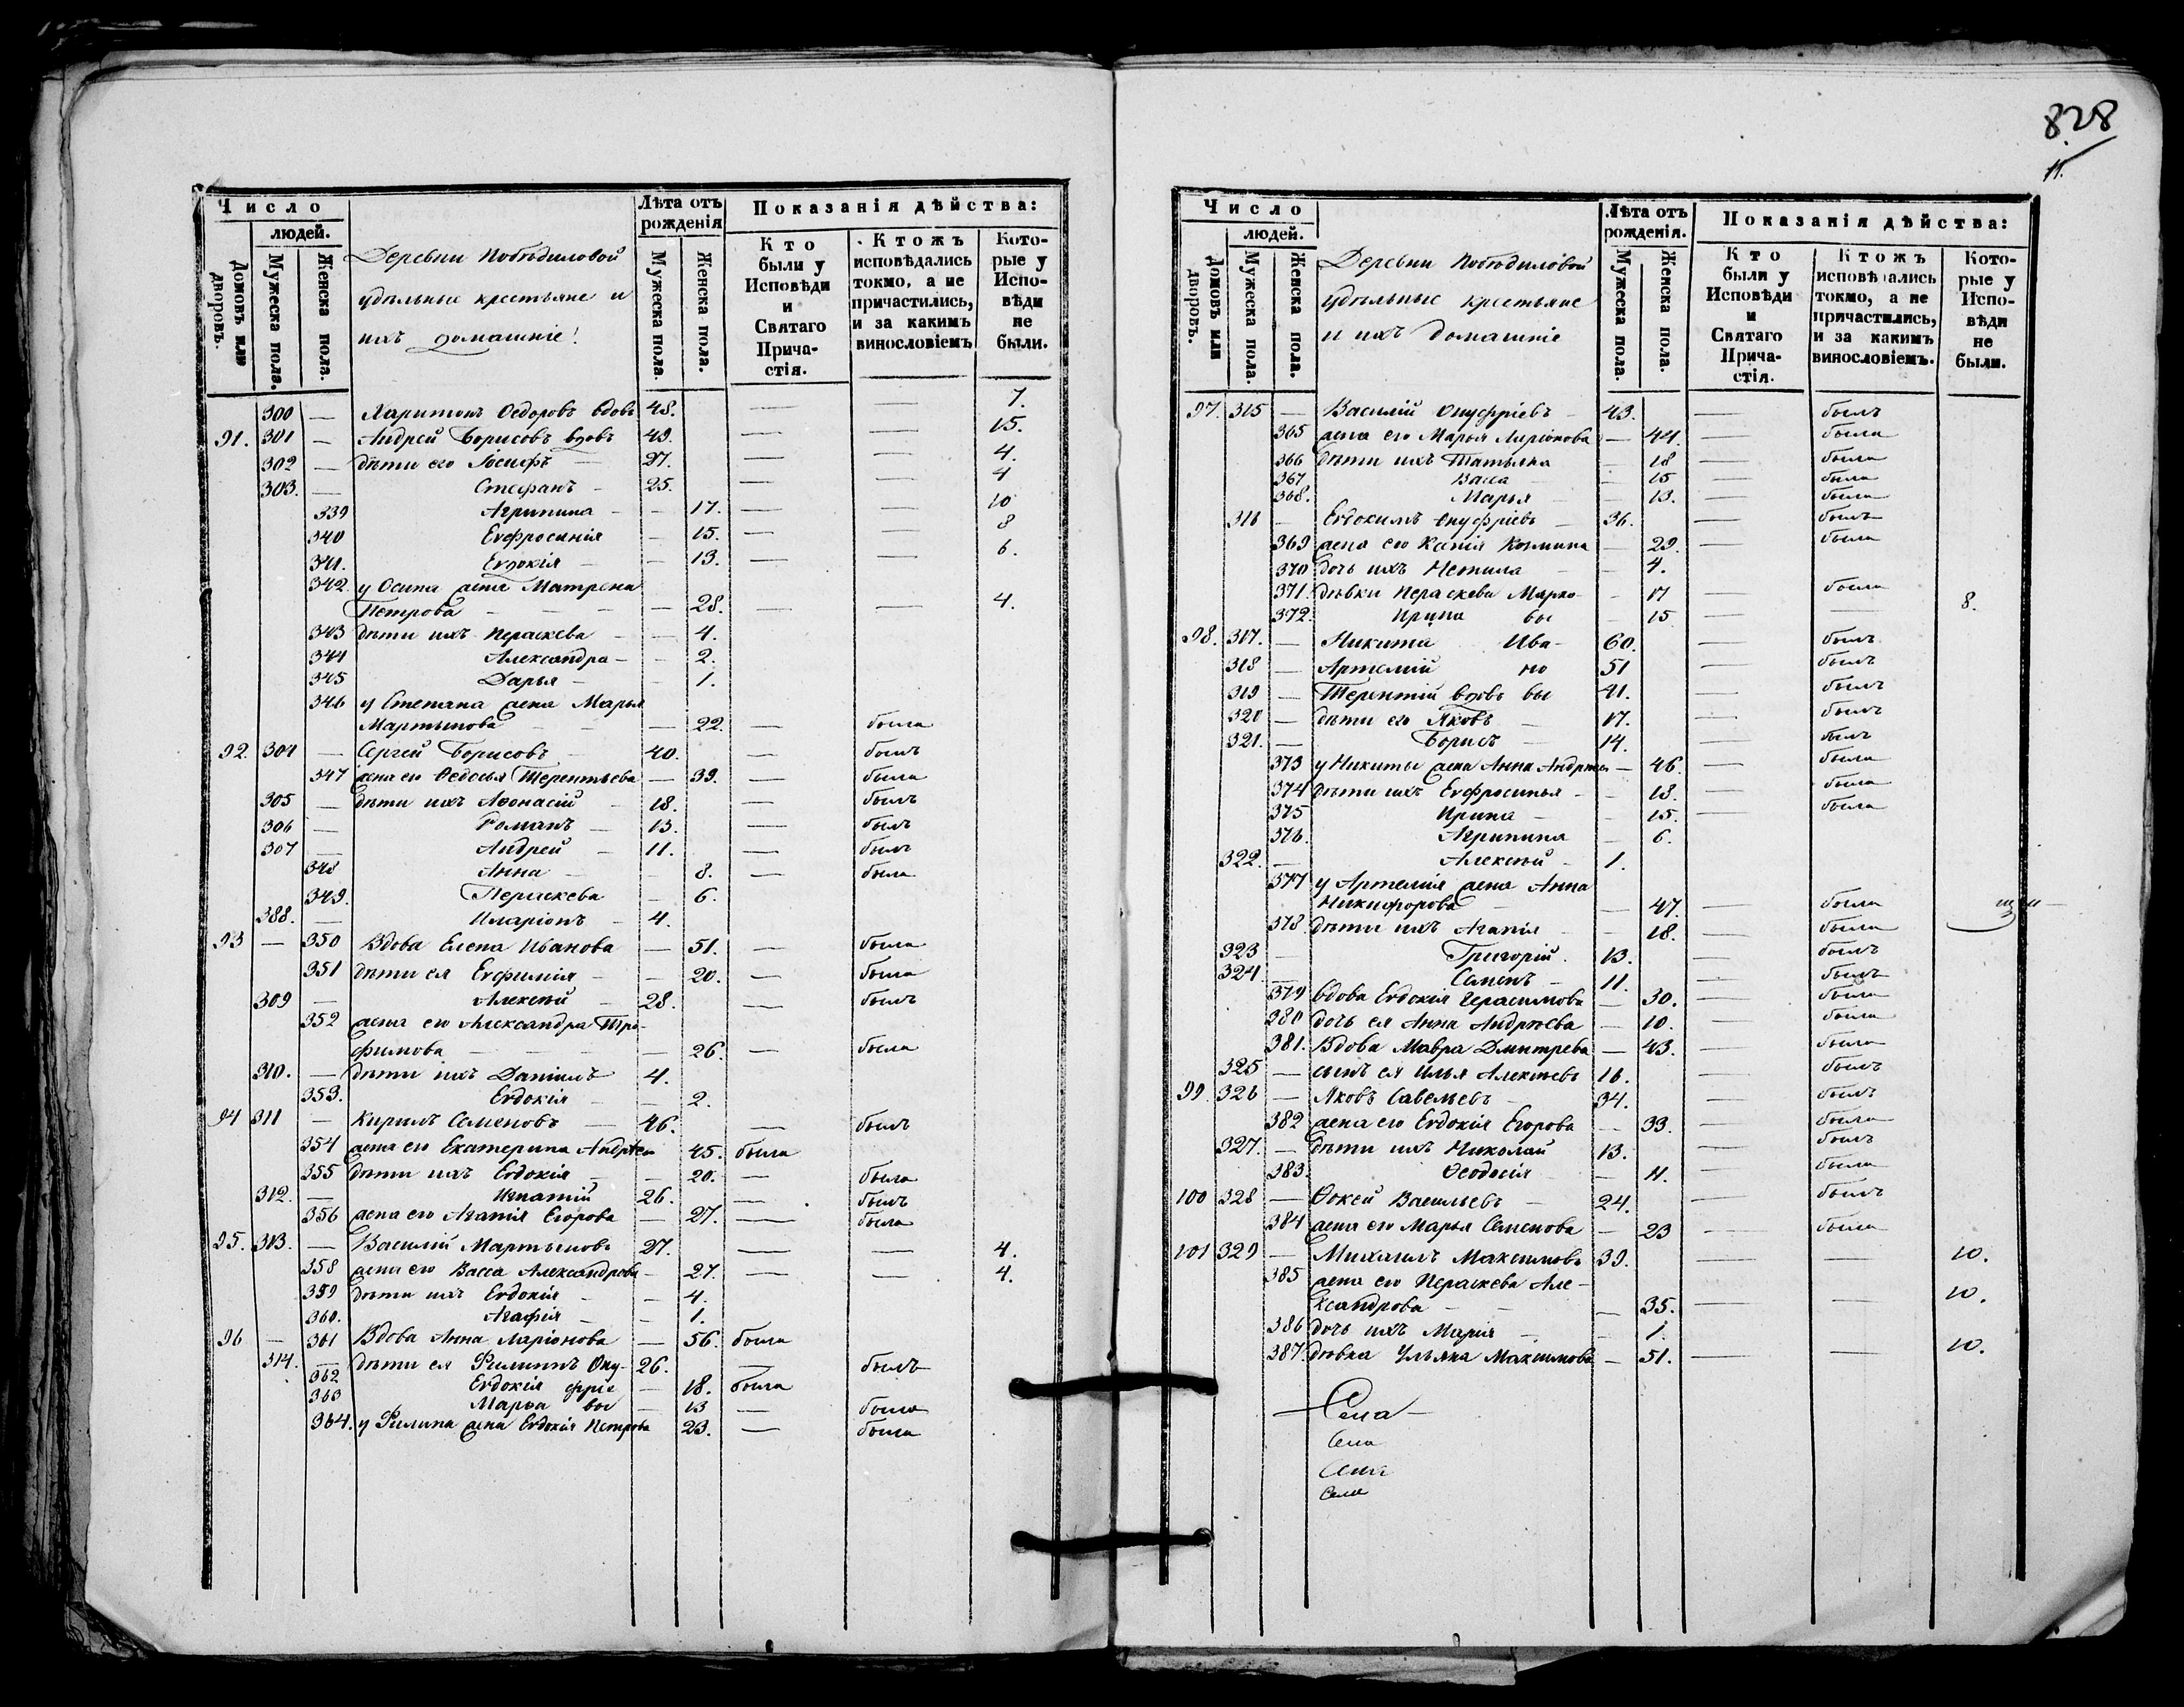 828
11.
Число
людей.
Домовъ или дворовъ.
Мужеска пола.
Женска пола.
Деревни Побѣдиловой
удѣльные крестьяне и
ихъ домашніе:
Лѣта отъ рожденія
Мужеска пола.
Женска пола.
Показанія дѣйства:
Кто были у Исповѣди и Святаго Причастія.
Ктожъ исповѣдались токмо, а не причастились, и за какимъ винословіемъ
Которые у Исповѣди не были.
300 — Харитонъ Ѳедоровъ вдовъ 48. — — 7.
91. 301 — Андрей Борисовъ вдовъ 49. — — 15.
302 — дѣти его Іосифъ — 27. — — 4.
303. — Стефанъ — 25. — — 4
339 Агрипина — — 17. — — 10
340 Евфросинія — 15. — — 8
341. Евдокія — — 13. — — 6.
342 у Осипа жена Матрена
Петрова — — — — 28. — — 4.
343 дѣти ихъ Пераскева — — 4.
344 Александра — — 2.
345 Дарья — — 1.
346 у Степана жена Марья
Мартынова — — — 22. — была
92. 304 — Сергей Борисовъ — 40. — былъ
347 жена его Ѳедосья Терентьева — 39. — была
305 — дѣти ихъ Афонасій — 18. — былъ
306 — Романъ — 13. — былъ
307 — Андрей — 11. — былъ
348 Анна — — 8. — была
349. Пераскева — 6.
388. — Иларіонъ — 4.
93 — 350 Вдова Елена Иванова — 51. — была
351 дѣти ея Евфимія — — 20. — была
309 — Алексѣй — 28. — былъ
352 жена его Александра Тро-
фимова — — — — 26. — была
310. — дѣти ихъ Даніилъ 4.
353. Евдокія — — 2.
94 311 — Кирилъ Семеновъ — 46. — былъ
354 жена его Екатерина Андреи 45. была
355 дѣти ихъ Евдокія — — 20. — была
312. — Игнатій 26. — былъ
356 жена его Агапія Егорова — 27. — была
95. 313. — Василій Мартыновъ 27. — — 4.
358 жена его Васса Александрова — 27. — — 4.
359 дѣти ихъ Евдокія — — 4.
360. Агафія — — 1.
96 — 361 Вдова Анна Ларіонова — 56. была
314. — дѣти ея Филипъ Ону- 26. — былъ
362 Евдокія фріе — 18. была
363 Марѳа вы — 13 — была
364. у Филипа жена Евдокія Петрова 23. — была
Число
людей.
Домовъ или дворовъ.
Мужеска пола.
Женска пола.
Деревни Побѣдиловой
Удѣльные крестьяне
и ихъ домашніе
Лѣта отъ рожденія.
Мужеска пола.
Женска пола.
Показанія дѣйства:
Кто были у Исповѣди и Святаго Причастія.
Ктожъ исповѣдались токмо, а не причастились, и за какимъ винословіемъ.
Которые у Исповѣди не были.
97. 315 — Василій Онуфріевъ — 43. — былъ
365 жена его Марья Ларіонова — 44. — была
366 дѣти ихъ Татьяна — 18 — была
367 Васса — — 15 — была
368. Марья — — 13. — была
316 — Евдокимъ Онуфріевъ — 36. — былъ
369 жена его Ксенія Козмина — 29. — была
370 дочь ихъ Неонила — — 4.
371. дѣвки Пераскева Марко- — 17 — была
372. Ирина вы — 15 — — 8.
98. 317. — Никита Ива- 60. — былъ
318 — Артемій но 51 — былъ
319 — Терентій вдовъ вы 41. — былъ
320 — дѣти его Яковъ — 17. — былъ
321. — Борисъ — 14. — былъ
373 у Никиты жена Анна Андреи — 46. — была
374 дѣти ихъ Евфросинья — — 18. — была
375 Ирина — — 15. — была
376. Агрипина — 6.
322. — Алексѣй — 1.
377 у Артемія жена Анна
Никифорова — — 47. — была
378. дѣти ихъ Агапія — — 18. — была
323 — Григорій. 13. — былъ
324. — Семенъ — 11. — былъ
379 вдова Евдокія Герасимова — 30. — была
380 дочь ея Анна Андреева — 10. — была
381. Вдова Мавра Дмитрева — 43. — была
325 — сынъ ея Илья Алексѣевъ 16. — былъ
99. 326 — Яковъ Савельевъ — 34. — былъ
382 жена его Евдокія Егорова — 33. — была
327. — дѣти ихъ Николай 13. — былъ
383. Ѳеодосія — 11. — была
100 328 — Ѳокей Васильевъ — 24. — былъ
384 жена его Марья Семенова — 23 — была
101 329 — Михаилъ Максимовъ 39. — — 10.
385 жена его Пераскева Але-
ксандрова — — — 35. — — 10.
386 дочь ихъ Марія — — 1.
387. дѣвка Ульяна Максимова — 51. — — 10.
Села
Села
Села
Села